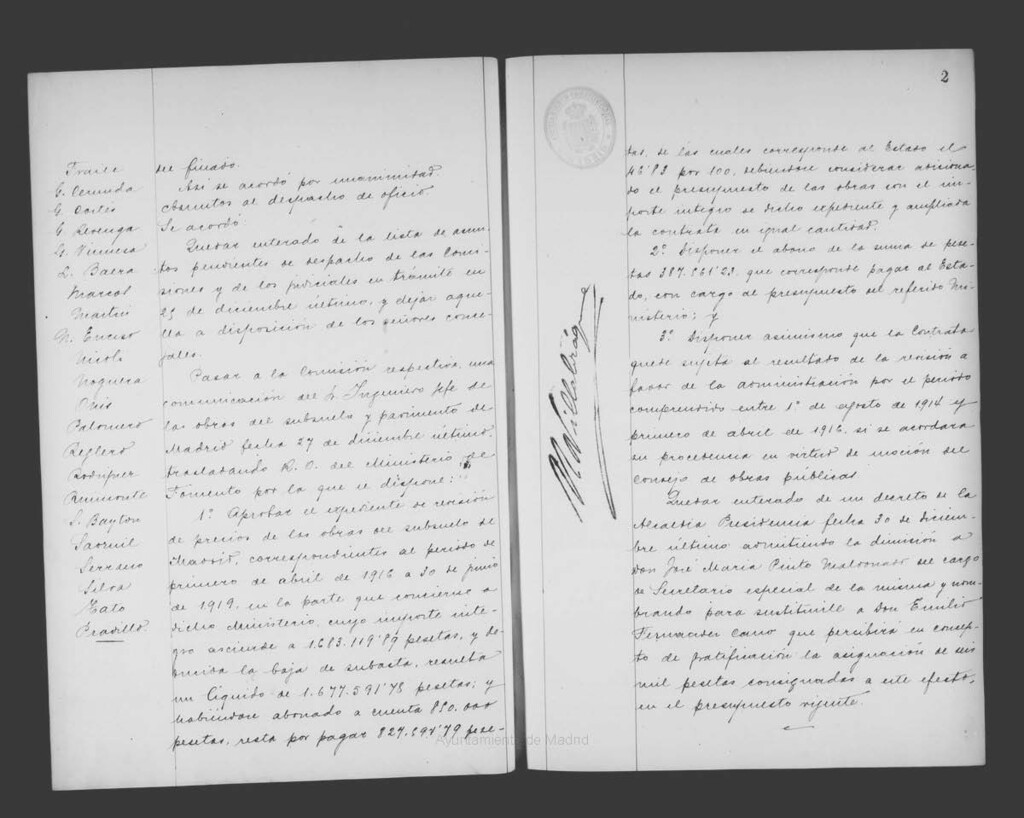 Fraile
G. Cernuda
G. Cortés
G. Levenga
G. Vinuesa
L. Baena
Marcos
Martín
N. Enciso
Nicoli
Noguera
Onis
Palomero
Reglero
Rodríguez
Rumonte
S. Bayton
Saornil
Serrano
Silva
Tato
Pradillo.
del finado.
Así se acordó por unanimidad.
Asuntos al despacho de oficio
Se acordó
Quedar enterado de la lista de asun-
tos pendientes de despacho de las Comi-
siones y de los judiciales en trámite en
29 de diciembre último, y dejar aque-
lla a disposición de los señores conce-
jales.
Pasar a la Comisión respectiva una
comunicación del S. Ingeniero jefe de
las obras del subsuelo y pavimento de
Madrid fecha 27 de diciembre último,
trasladando R. O. del Ministerio de
Fomento por la que se dispone:
1º Aprobar el expediente de revisión
de precios de las obras del subsuelo de
Madrid, correspondientes al periodo de
primero de abril de 1916 a 30 de junio
de 1919, en la parte que concierne a
dicho Ministerio, cuyo importe inte-
gro asciende a 1.683.119'89 pesetas, y de-
ducida la baja de subasta, resulta
un líquido de 1.677.591'78 pesetas; y
habiéndose abonado a cuenta 850.000
pesetas, resta por pagar 827.594'79 pese-
Ayuntamiento de Madrid
2
tas, de las cuales corresponde al Estado el
46'83 por 100, debiéndose considerar adiciona-
do el presupuesto de las obras con el im-
porte íntegro de dicho expediente y ampliada
la contrata en igual cantidad.
2º Disponer el abono de la suma de pese-
tas 387.861'23, que corresponde pagar al Esta-
do, con cargo al presupuesto del referido Mi-
nisterio; y
3º Disponer asimismo que la Contrata
quede sujeta al resultado de la revisión a
favor de la administración por el periodo
comprendido entre 1º de agosto de 1914 y
primero de abril de 1916, si se acordara
en procedencia en virtud de moción del
Consejo de obras públicas.
Quedar enterado de un decreto de la
Alcaldía Presidencia fecha 30 de diciem-
bre último admitiendo la dimisión a
Don José María Pinto Maldonado del cargo
de Secretario especial de la misma y nom-
brando para sustituirle a Don Emilio
Fernández Cano que percibirá en concep-
to de gratificación la asignación de seis
mil pesetas consignadas a este efecto,
en el presupuesto vigente.